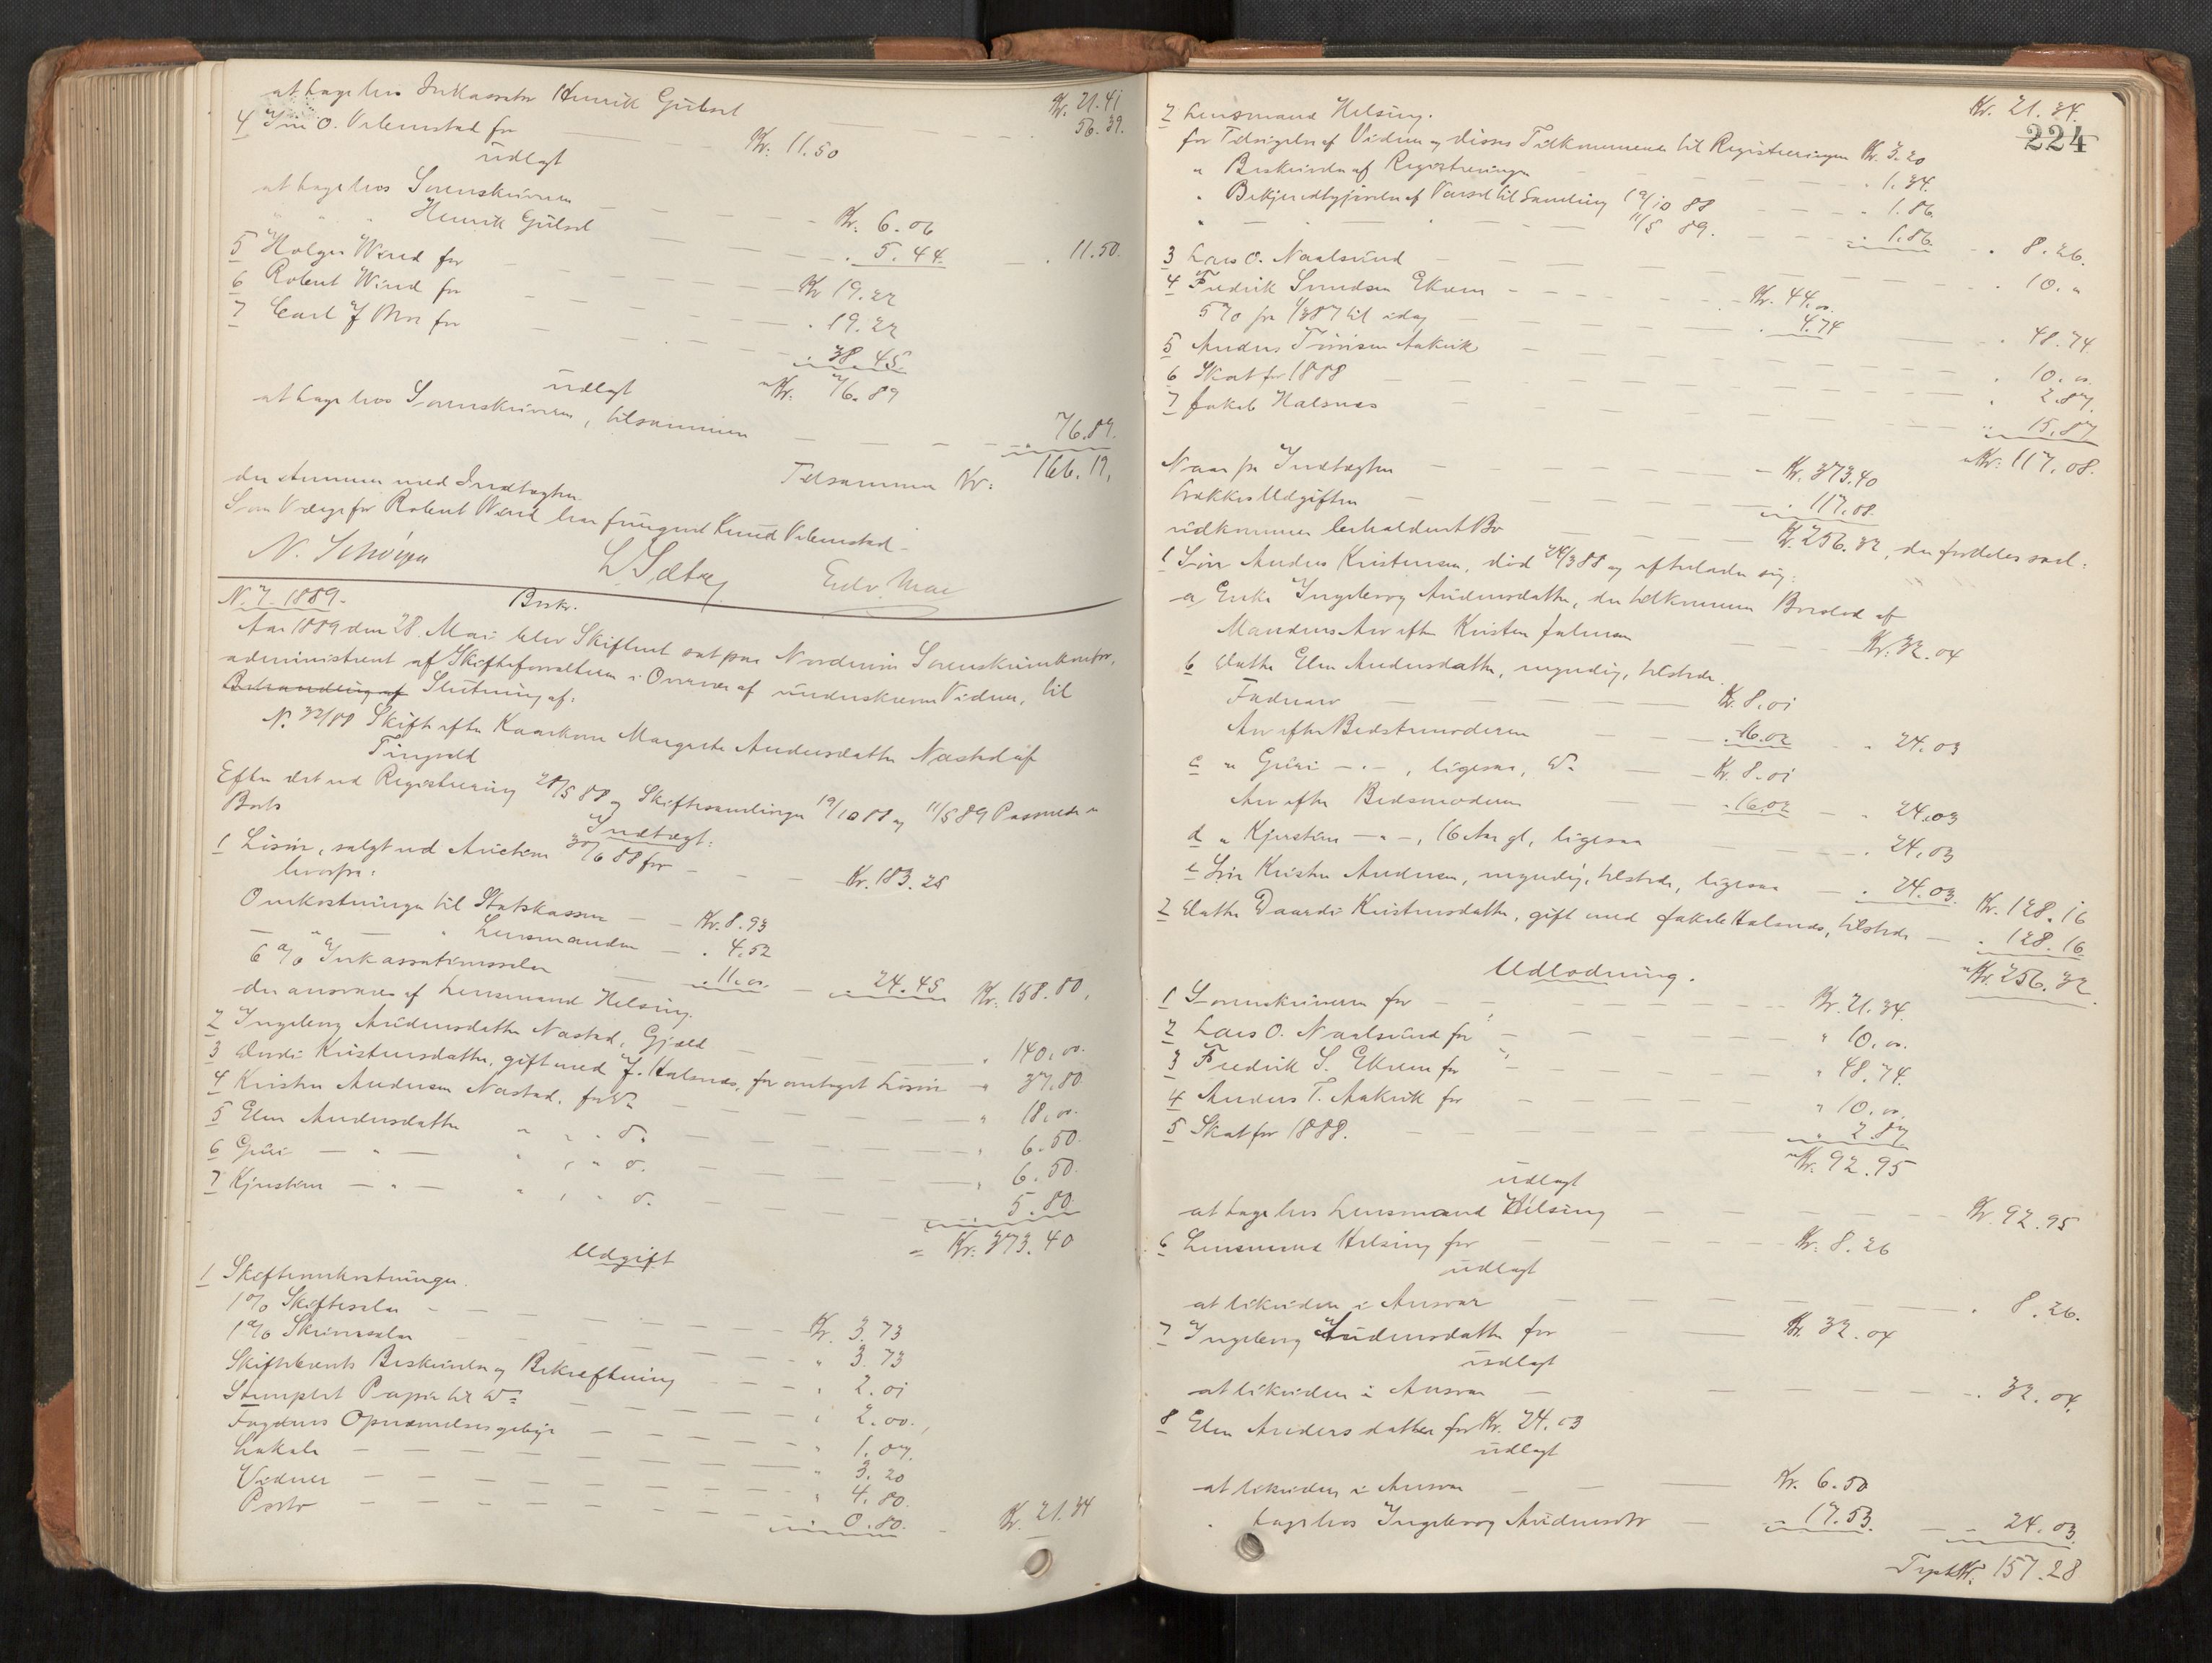 at tage hos Inkassator Henrik Gütsel Kr. 21.41
56.39.
4 O. Vebenstad for Kr. 11.50
udlagt
at tage hos Sorenskriveren Kr. 6.06
" " " Henrik Gütsel " 5.44 " 11.50.
5 Holger Wind for Kr 19.22
6 Robert Wind for " 19.22
7 Carl J. Moe for " 38.45.
Kr. 76.89
udlagt
at tage hos Sorenskriveren, tilsammen " 76.89.
Tilsammen Kr: 166.19,
der stemmer med Indtægten.
Som Værge for Robert Wind har fungeret Knud Vebenstad.
N. Schöyen L Sæbøe Edv. Moe
N. 7. 1889. Beskr.
Aar 1889 den 28. Mai blev Skifteret sat paa Nordmør Sorenskriverkontor,
administreret af Skifteforvalteren i Overvær af underskrevne Vidner, til
Behandling af Slutning af:
N. 32/88 Skifte efter Kaarkone Margrete Andersdatter Nastad af
Tingvold
Efter det ved Registrering 28/5 88 og Skiftesamlinger 19/10 88 og 11/5 89 Passerede er
Boets
Indtægt:
1 Løsøre, solgt ved Auktion 30/6 88 for Kr. 183.25
hvorfra:
Omkostninger til Statskassen Kr. 8.93
" Lensmanden " 4.52
6 % Inkassationssalær " 11.00 " 24.45 Kr. 158.80,
der ansvares af Lensmand Helsing.
2 Ingeborg Audensdatter Nastad, Gjæld " 140.00
3 Kristensdatter, gift med J. Halsnæs, for antaget Løsøre " 37.80
4 Kristen Andersen Nastad, for Do " 18.00
5 Elen Andersdatter " " " Do " 6.50
6 Guri — " — " " " Do " 6.50
7 Kjersten — " — " " " Do " 5.80
= Kr. 373.40
Udgift
1 Skifteomkostninger.
1 % Skiftesalær Kr. 3.73
1 % Skriversalær " 3.73
Skiftebrevets Beskrivelse og Bekræftning " 2.01
Stemplet Papir til Do " 2.00,
Fogdens Opnævnelsesgebyr " 1.07
Lokale " 3.20
Vidner " 4.80
Porto " 0.80 Kr. 21.34
Kr. 21.34.
224
2 Lensmand Helsing.
for Tilsigelse af Vidner og disses Tilkommende til Registreringen Kr. 3.20
" Beskrivelse af Registreringen " 1.34.
" Bekjendtgjørelse af Varsel til Samling 19/10 88 " 1.86.
" — " — 11/5 89. " 1.86. " 8.26.
3 Lars O. Naalsund " 10. "
4 Fredrik Svendsen Ekren Kr. 44.00
5 % fra 1/3 87 til idag " 4.74 " 48.74.
5 Anders Tørrisen Aakvik " 10.00
6 Skat for 1888 " 2.87.
7 Jakob Halsnæs " 15.87
Kr. 117.08.
Naar fra Indtægten Kr. 373.40
trækkes Udgiften " 117.08.
udkommer beholdent Bo Kr. 256.32, der fordeles saal:
1 Søn Anders Kristensen, død 24/3 88 og efterlader sig:
a, Enke Ingeborg Audensdatter, der tilkommer Boeslod af
Mandens Arv efter Kristen Kr. 32.04
b Datter Elen Andersdatter, myndig, tilstede.
Fadersarv Kr. 8.01
Arv efter Bedstemoderen " 16.02 " 24.03
c " Guri — " —, ligesaa, Do Kr. 8.01
Arv efter Bedstmoderen " 16.02 " 24.03
d " Kjersten — " —, 16 Aar gl, ligesaa " 24.03
e Søn Kristen Andersen, myndig, tilstede, ligesaa " 24.03. Kr. 128.16
2 Datter Daardi Kristensdatter, gift med Jakob Halsnæs, tilstede " 128.16
Kr. 256.32.
Udlodning.
1 Sorenskriveren for Kr. 21.34.
2 Lars O. Naalsund for " 10.00.
3 Fredrik S. Ekren for " 48.74.
4 Anders T. Aakvik for " 10.00.
5 Skat for 1888. " 2.87
Kr. 92.95
udlagt
at tage hos Lensmand Helsing Kr. 92.95
6 Lensmand Helsing for Kr. 8.26
udlagt
at likvidere i Ansvar " 8.26.
7 Ingeborg Audensdatter for Kr. 32.04
udlagt
at likvidere i Ansvar " 32.04.
8 Elen Andersdatter for Kr. 24.03
udlagt
at likvidere i Ansvar Kr. 6.50
" tage hos Ingeborg Audensdtr " 17.53. " 24.03
Trpt Kr. 157.28